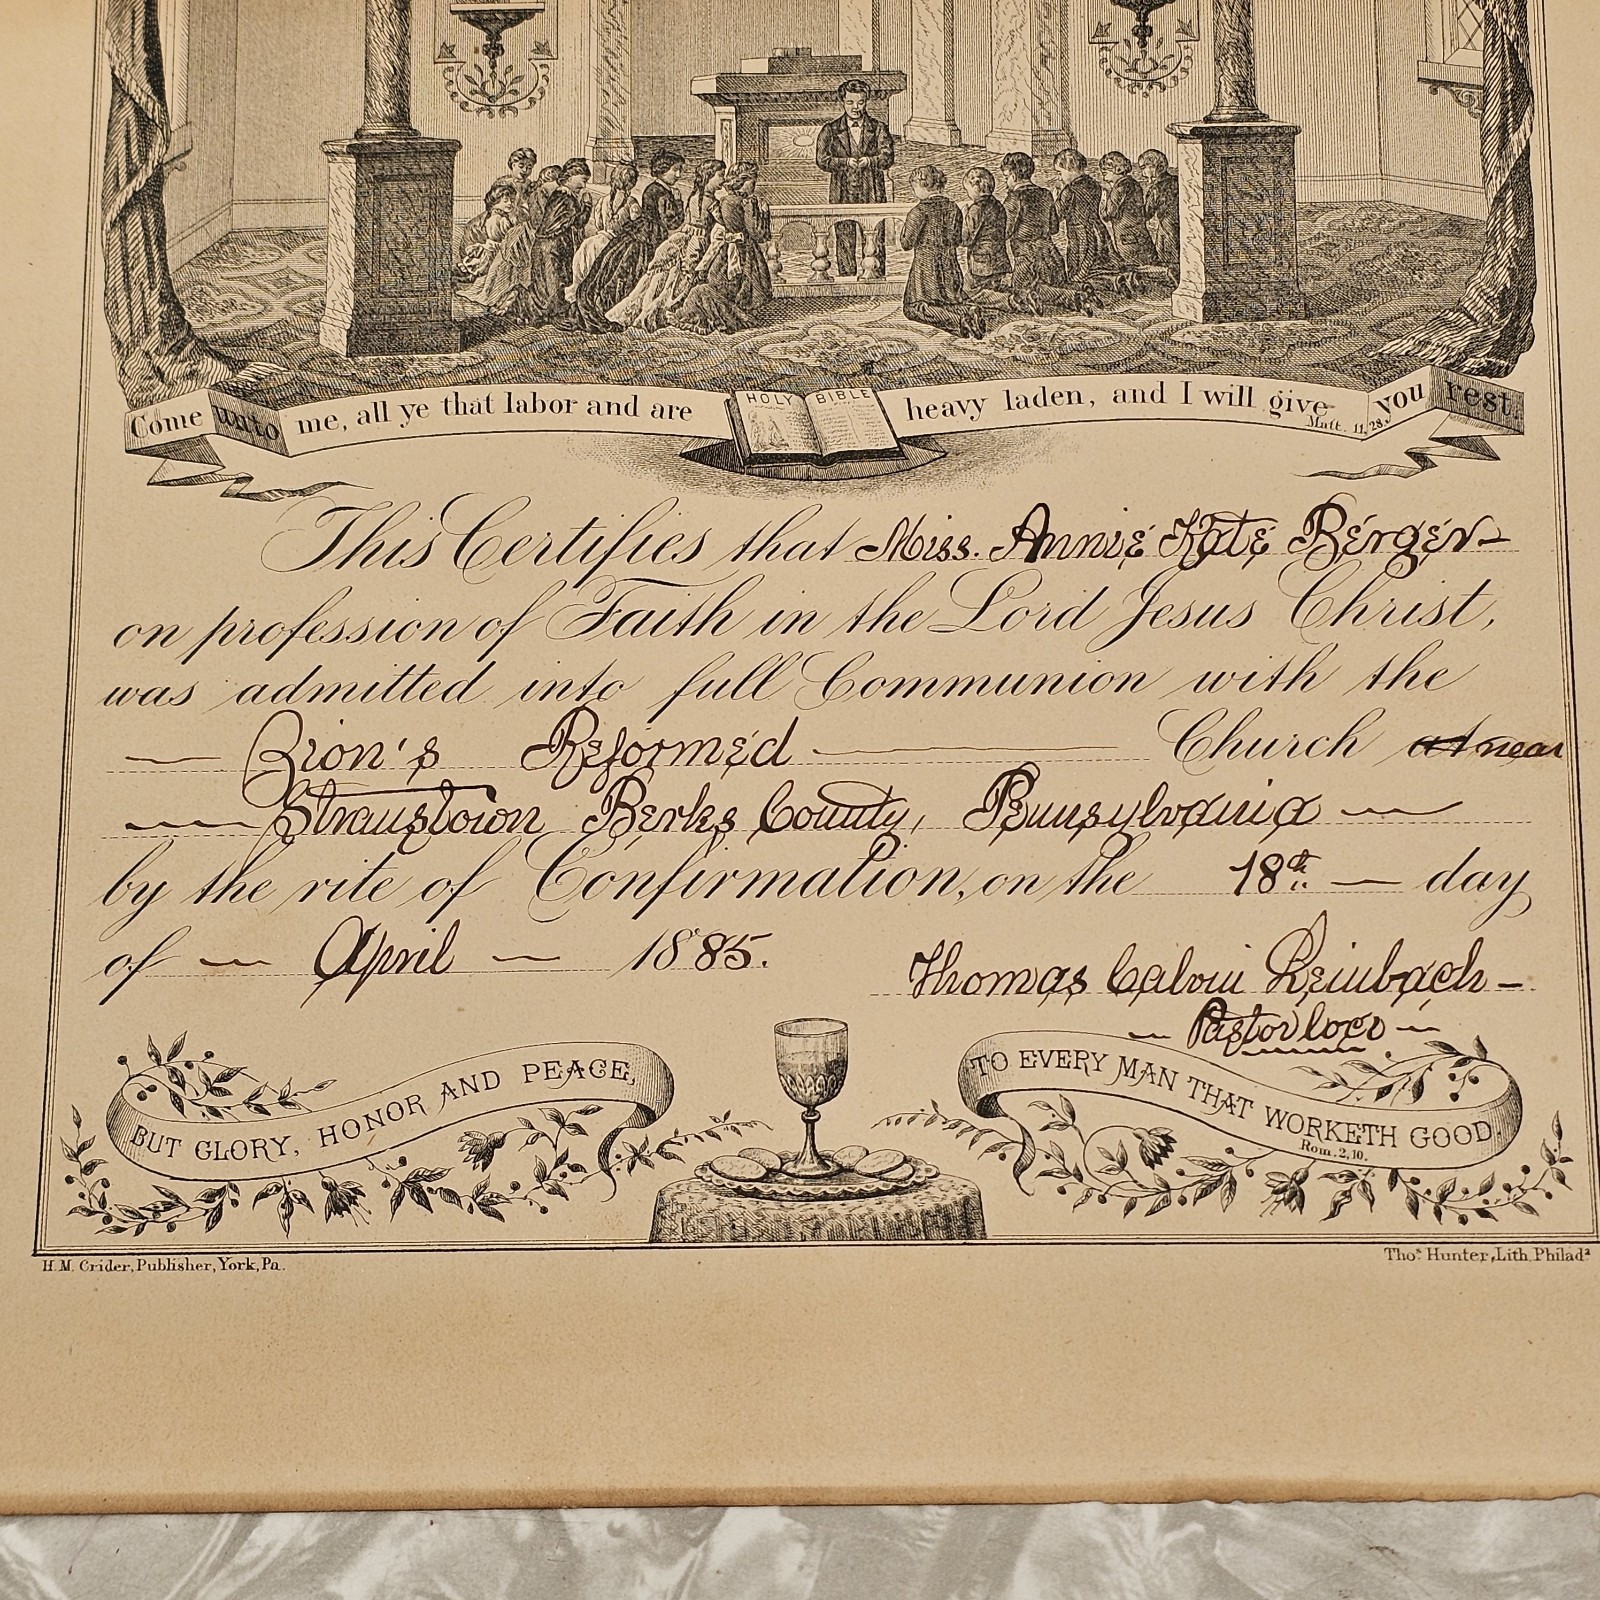 Come unto me, all ye that labor and are HOLY BIBLE heavy laden, and I will give you rest.
Matt. 11,28.
This Certifies that Miss. Annie Kate Berger
on profession of Faith in the Lord Jesus Christ,
was admitted into full Communion with the
— Zion's Reformed — Church at near
— Straustown Berks County, Pennsylvania —
by the rite of Confirmation, on the 18th — day
of — April — 1885.
Thomas Calvin Reinbach —
— Pastor loci —
BUT GLORY, HONOR AND PEACE,
TO EVERY MAN THAT WORKETH GOOD.
Rom. 2,10.
H. M. Crider, Publisher, York, Pa.
Thos. Hunter, Lith. Philada